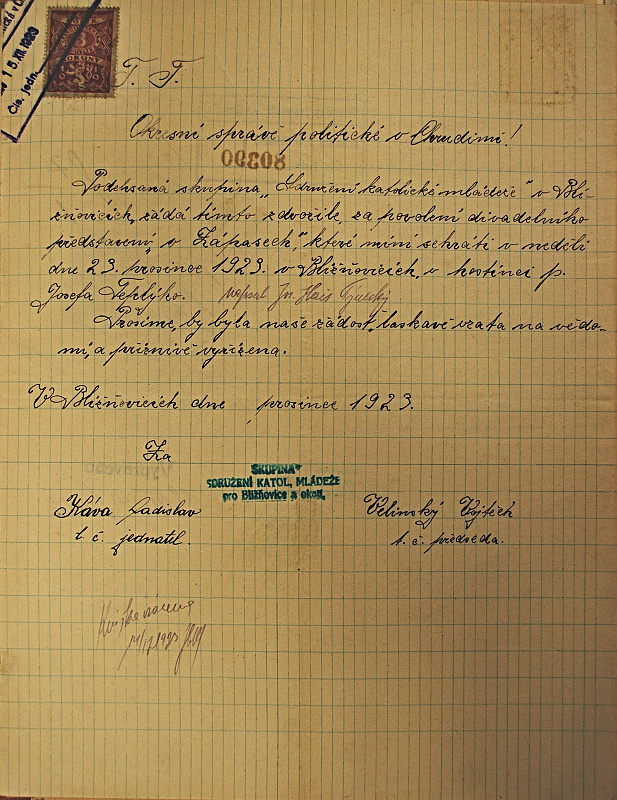 15.XII.1923
Čís. jedn.
T. T.
Okresní správě politické v Chrudimi!
80390
Podepsaná skupina „Sdružení katolické mládeže" v Bli-
žňovicích, žádá tímto zdvořile, za povolení divadelního
představení „v Zápasech," které míní sehráti v neděli
dne 23. prosince 1923. v Bližňovicích, v hostinci p.
Josefa Teplýho. napsal Jos. Hais Týnecký
Prosíme, by byla naše žádost, laskavě vzata na vědo-
mí, a příznivě vyřízena.
V Bližňovicích dne prosince 1923.
Za
SKUPINA
SDRUŽENÍ KATOL. MLÁDEŽE
pro Bližňovice a okolí.
Káva Ladislav
t. č. jednatel.
Velinský Vojtěch
t. č. předseda.